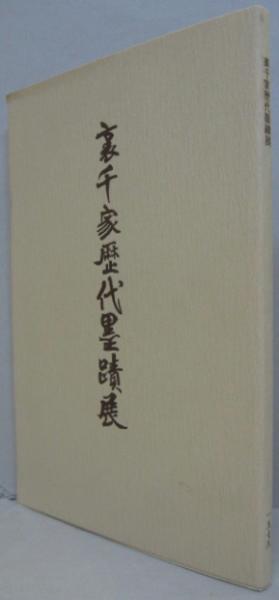 裏千家歴代墨蹟展
裏千家歴代墨蹟展